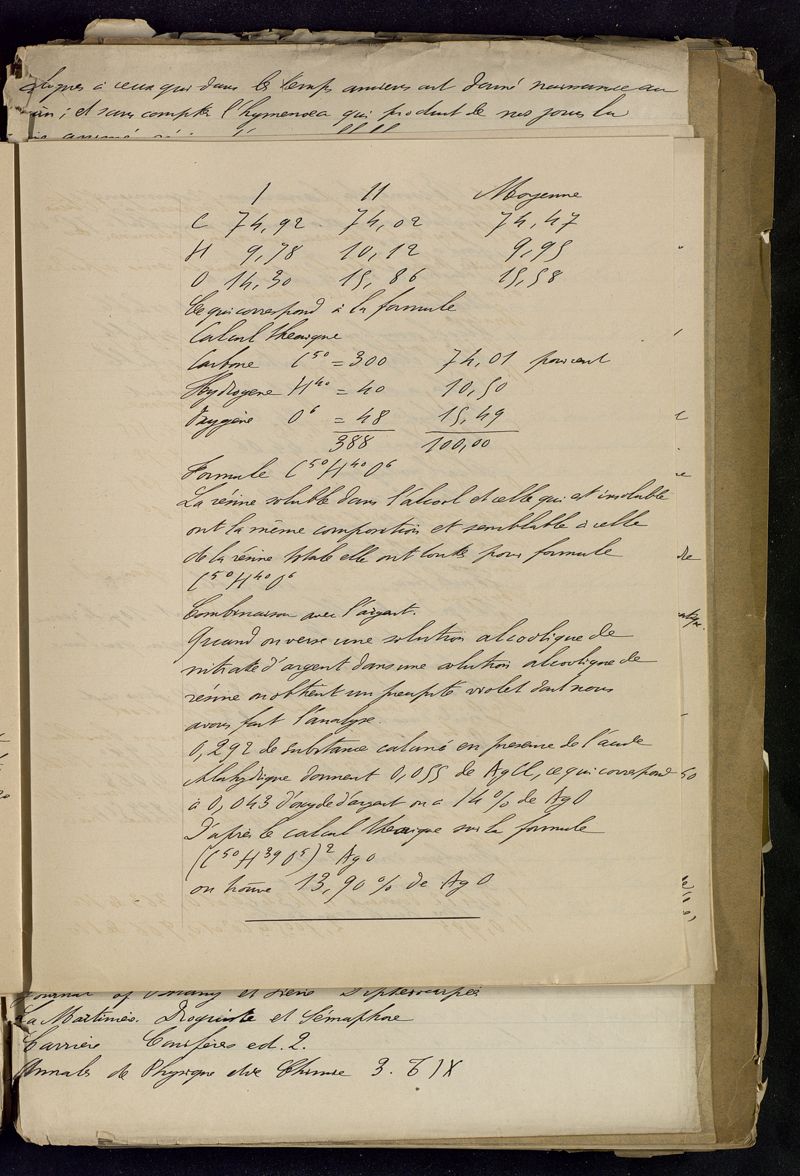 à ceux qui dans les temps anciens ont donné naissance au
; et sans compter l'hymenoea qui produit de nos jours la
I II Moyenne
C 74,92 - 74,02 74,47
H 9,78 10,12 9,95
O 14,30 15,86 15,58
Ce qui correspond à la formule
Calcul theorique
Carbone C50 = 300 74,01 pour cent
Hydrogene H40 = 40 10,50
Oxygène O6 = 48 15,49
388 100,00
Formule C50H40O6
La résine soluble dans l'alcool et celle qui est insoluble
ont la même composition et semblable à celle
de la résine totale elle ont toutes pour formule
C50H40O6
Combinaison avec l'argent.
Quand on verse une solution alcoolique de
nitrate d'argent dans une solution alcoolique de
résine on obtient un precipité violet dont nous
avons fait l'analyse.
0,292 de substance calciné en presence de l'acide
chlohydrique donnent 0,055 de AgCl, ce qui correspond
à 0,043 d'oxyde d'argent on a 14% de AgO
D'après le calcul theorique sur la formule
(C50H39O5)2 AgO
on trouve 13,90% de AgO
Journal of Botany et Dipterocarpées
La Martinière. Droguiste et Sémaphore
Carrière Conifères ed. 2.
Annales de Physique et de Chimie 3.